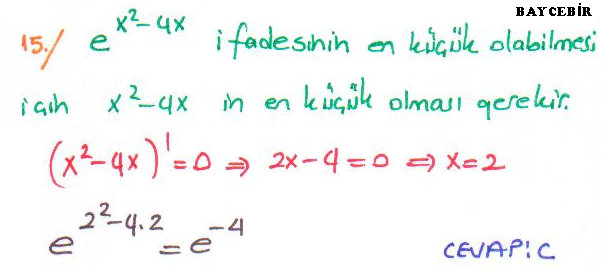 BAYCEBİR
15./ e^{x²-4x} ifadesinin en küçük olabilmesi
için x²-4x in en küçük olması gerekir.
(x²-4x)' = 0 ⇒ 2x-4=0 ⇔ x=2
e^{2²-4.2} = e^{-4}
CEVAP: C